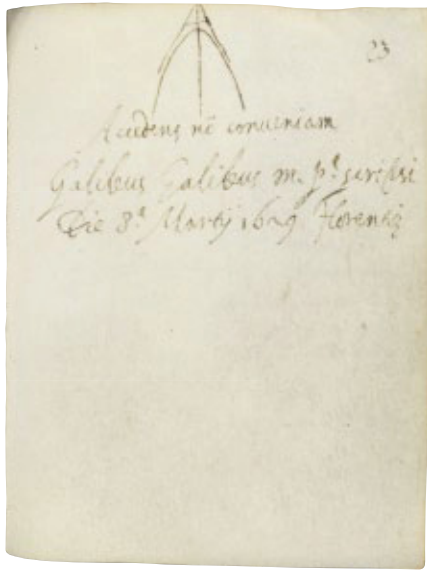 23
Accedens nõ conveniam
Galileus Galileus m. pᵃ scripsi
Die 8ᵃ Martij 1629 Florentiȩ